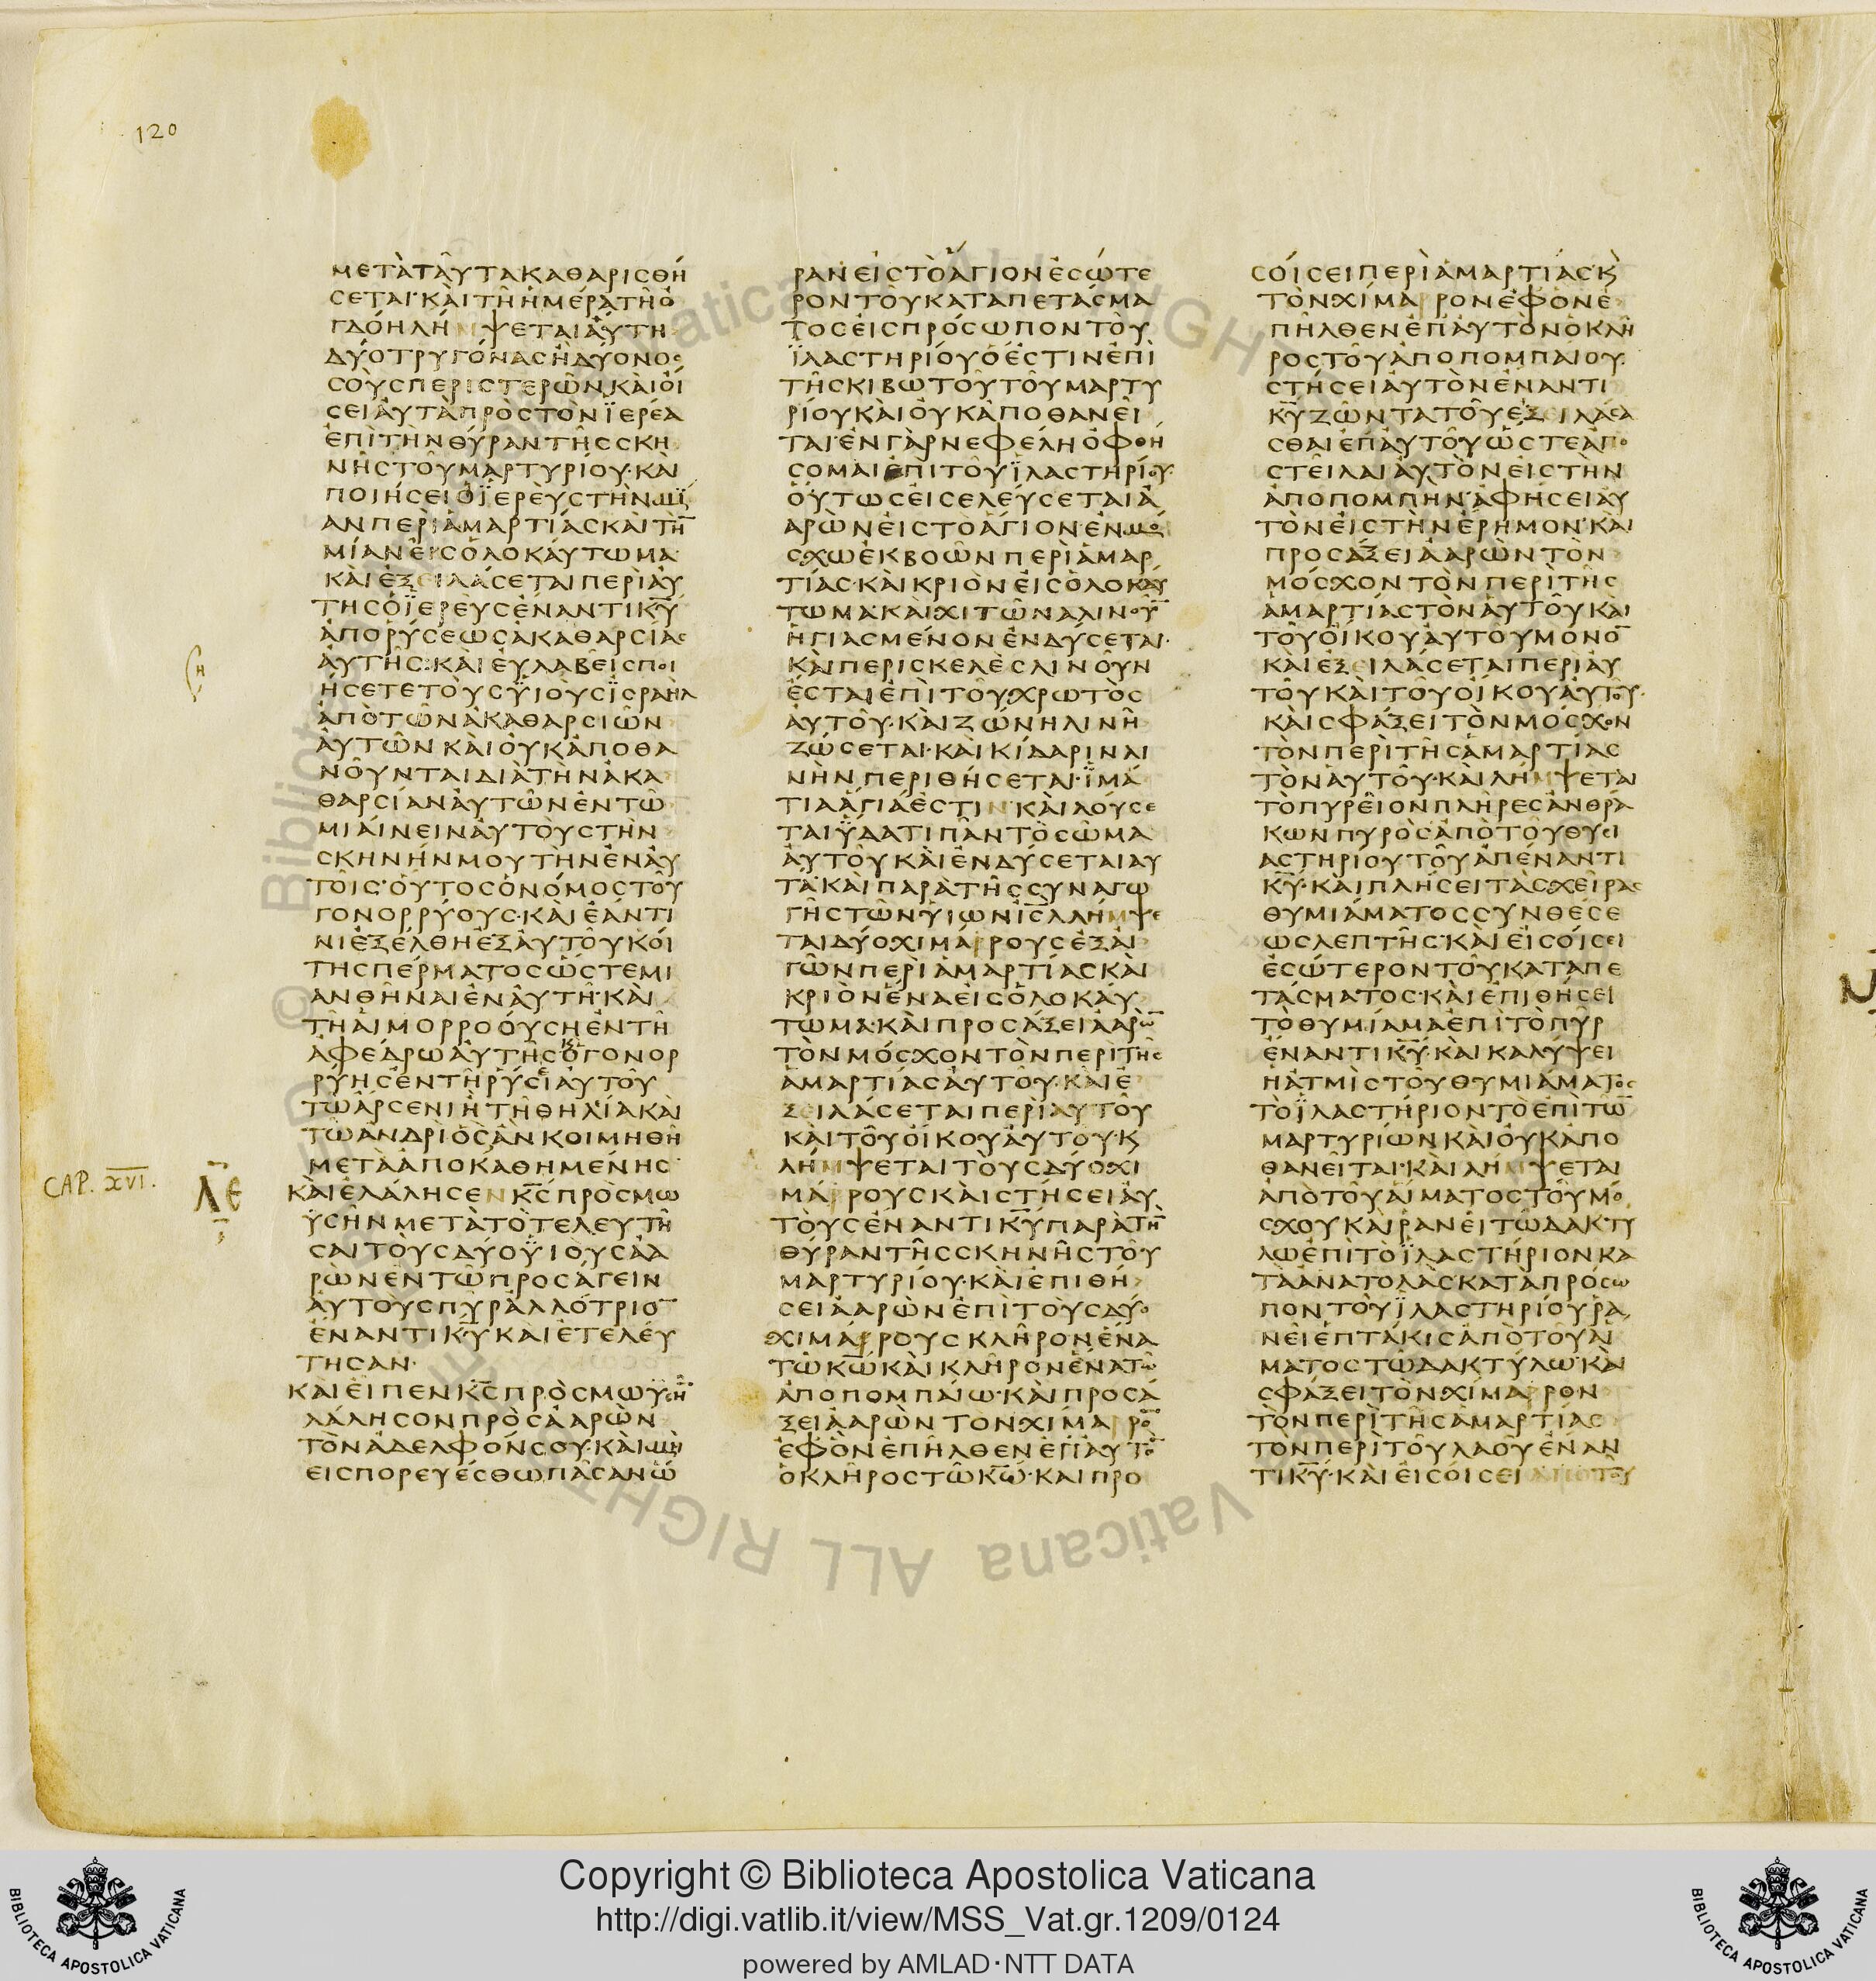 120
ΜΕΤᾺΤΑΥ͂ΤΑΚΑΘΑΡΙϹΘΉ
ϹΕΤΑΙ·ΚΑῚΤΗ͂ΗΜΈΡΑΤΗ͂Ὀ
ΓΔΌΗΛΉΜΨΕΤΑΙΑΥΤΗ
ΔΎΟΤΡΥΓΌΝΑϹΗΔΎΟΝΟϹ
ϹΟῪϹΠΕΡΙϹΤΕΡΩ͂Ν·ΚΑῚΟΊ
ϹΕΙΑΥΤᾺΠΡῸϹΤῸΝΪΕΡΈΑ
ἘΠῚΤῊΝΘΎΡΑΝΤΗ͂ϹϹΚΗ
ΝΗ͂ϹΤΟΥ͂ΜΑΡΤΥΡΊΟΥ·ΚΑῚ
ΠΟΙΉϹΕΙΟΪΕΡΕῪϹΤῊΝΜΪ
ΑΝΠΕΡῚΑΜΑΡΤΊΑϹΚΑῚΤῊ̅
ΜΊΑΝΕΙϹΟΛΟΚΑΎΤΩΜΑ·
ΚΑῚΕΞΕΙΛΆϹΕΤΑΙΠΕΡῚΑΥ
ΤΗϹΟΪΕΡΕῪϹΈΝΑΝΤΙΚ̅Υ̅
ἈΠΟΡΎϹΕΩϹΑΚΑΘΑΡϹΊΑϹ
ΑΥΤΗ͂Ϲ·ΚΑῚΕΥΛΑΒΕΙ͂ϹΠΟΙ
Η
ΉϹΕΤΕΤΟῪϹΫΙΟῪϹΪϹΡΑΗΛ
ἈΠῸΤΩ͂ΝΑΚΑΘΑΡϹΙΩ͂Ν
ΑΥΤΩ͂ΝΚΑῚΟΥΚΑΠΟΘΑ
ΝΟΥ͂ΝΤΑΙΔΙᾺΤῊΝΑΚΑ
ΘΑΡϹΊΑΝΑΥΤΩ͂ΝΕΝΤΩ͂
ΜΙΑΊΝΕΙΝΑΥΤΟῪϹΤῊΝ
ϹΚΗΝΉΝΜΟΥΤῊΝΕΝΑΥ
ΤΟΙ͂Ϲ·ΟΥΤΟϹΟΝΌΜΟϹΤΟΥ͂
ΓΟΝΟΡΡΎΟΥϹ·ΚΑῚΕΆΝΤΙ
ΝΙΕΞΈΛΘΗΕΞΑΥΤΟΥ͂ΚΟΊ
ΤΗϹΠΈΡΜΑΤΟϹΏϹΤΕΜΙ
ΑΝΘΗ͂ΝΑΙΕΝΑΥΤΗ͂·ΚΑῚ
ΤΗ͂ΑΙΜΟΡΡΟΟΎϹΗΕΝΤΗ͂
ἈΦΈΔΡΩΑΥΤΗ͂ϹΟΓΟΝΟΡ
ΡΎΗϹΕΝΤΗ͂ΡΎϹΙΑΥΤΟΥ͂
ΤΩ͂ΆΡϹΕΝΙΗΤΗ͂ΘΗΛΊΑΚΑῚ
ΤΩ͂ΑΝΔΡῚΟϹΑΝΚΟΙΜΗΘΗ͂
ΜΕΤᾺΑΠΟΚΑΘΗΜΈΝΗϹ·
CAP. XVI.
ΛΕ
ΚΑῚΕΛΆΛΗϹΕΝΚ̅Ϲ̅ΠΡῸϹΜΩ
ΥϹΗ͂ΝΜΕΤᾺΤῸΤΕΛΕΥΤΗ͂
ϹΑΙΤΟῪϹΔΎΟΫΙΟῪϹΑΑ
ΡῺΝΕΝΤΩ͂ΠΡΟϹΆΓΕΙΝ
ΑΥΤΟῪϹΠΥ͂ΡΑΛΛΌΤΡΙΟ̅
ΈΝΑΝΤΙΚ̅Υ̅ΚΑῚΕΤΕΛΕΎ
ΤΗϹΑΝ·
ΚΑῚΕΙ͂ΠΕΝΚ̅Ϲ̅ΠΡῸϹΜΩΫϹΗ̅
ΛΆΛΗϹΟΝΠΡῸϹΑΑΡῺΝ
ΤῸΝΑΔΕΛΦΌΝϹΟΥ·ΚΑῚΜῊ
ΕΙϹΠΟΡΕΥΈϹΘΩΠΑ͂ϹΑΝΩ
ΡΑΝΕΙϹΤῸΆΓΙΟΝΕϹΏΤΕ
ΡΟΝΤΟΥ͂ΚΑΤΑΠΕΤΆϹΜΑ
ΤΟϹΕΙϹΠΡΌϹΩΠΟΝΤΟΥ͂
ΪΛΑϹΤΗΡΊΟΥΟΕϹΤΙΝΕΠῚ
ΤΗ͂ϹΚΙΒΩΤΟΥ͂ΤΟΥ͂ΜΑΡΤΥ
ΡΊΟΥΚΑῚΟΥΚΑΠΟΘΑΝΕΙ͂
ΤΑΙ·ΕΝΓᾺΡΝΕΦΈΛΗΟΦΘΉ
ϹΟΜΑΙΕΠῚΤΟΥ͂ΪΛΑϹΤΗΡΊΟΥ·
ΟΎΤΩϹΕΙϹΕΛΕΎϹΕΤΑΙΑ
ΑΡῺΝΕΙϹΤῸΆΓΙΟΝ·ΕΝΜΟ
ϹΧΩΕΚΒΟΩ͂ΝΠΕΡῚΑΜΑΡ
ΤΊΑϹ·ΚΑῚΚΡΙῸΝΕΙϹΟΛΟΚΑΥ
ΤΩΜΑ·ΚΑῚΧΙΤΩ͂ΝΑΛΙΝΟΥ̅
ΗΓΙΑϹΜΈΝΟΝΕΝΔΎϹΕΤΑΙ·
ΚΑῚΠΕΡΙϹΚΕΛῈϹΛΙΝΟΥ͂Ν
ΈϹΤΑΙΕΠῚΤΟΥ͂ΧΡΩΤῸϹ
ΑΥΤΟΥ͂·ΚΑῚΖΏΝΗΛΙΝΗ͂
ΖΏϹΕΤΑΙ·ΚΑῚΚΊΔΑΡΙΝΛΙ
ΝΗ͂ΝΠΕΡΙΘΉϹΕΤΑΙ·ΪΜΆ
ΤΙΑΆΓΙΆΕϹΤΙΝ·ΚΑῚΛΟΎϹΕ
ΤΑΙΫΔΑΤΙΠΑ͂ΝΤῸϹΩ͂ΜΑ
ΑΥΤΟΥ͂ΚΑῚΕΝΔΎϹΕΤΑΙΑΥ
ΤΆ·ΚΑῚΠΑΡᾺΤΗ͂ϹϹΥΝΑΓΩ
ΓΗ͂ϹΤΩ͂ΝΫΙΩΝΙ̅Ϲ̅Λ̅ΛΉΜΨΕ
ΤΑΙΔΎΟΧΙΜΆΡΟΥϹΕΞΑΙ
ΓΩ͂ΝΠΕΡῚΑΜΑΡΤΊΑϹΚΑῚ
ΚΡΙῸΝΈΝΑΕΙϹΟΛΟΚΑΎ
ΤΩΜΑ·ΚΑῚΠΡΟϹΆΞΕΙΑΑΡΩ̅
ΤῸΝΜΌϹΧΟΝΤῸΝΠΕΡῚΤΗ͂Ϲ
ΑΜΑΡΤΊΑϹΑΥΤΟΥ͂·ΚΑῚΕ
ΞΕΙΛΆϹΕΤΑΙΠΕΡῚΑΥΤΟΥ͂
ΚΑῚΤΟΥ͂ΟΊΚΟΥΑΥΤΟΥ·Κ
ΛΉΜΨΕΤΑΙΤΟῪϹΔΎΟΧΙ
ΜΆΡΟΥϹΚΑῚϹΤΉϹΕΙΑΥ
ΤΟῪϹΈΝΑΝΤΙΚ̅Υ̅ΠΑΡᾺΤῊ̅
ΘΎΡΑΝΤΗ͂ϹϹΚΗΝΗ͂ϹΤΟΥ͂
ΜΑΡΤΥΡΊΟΥ·ΚΑῚΕΠΙΘΉ
ϹΕΙΑΑΡῺΝΕΠῚΤΟῪϹΔΎΟ
ΧΙΜΆΡΟΥϹΚΛΗ͂ΡΟΝΈΝΑ
ΤΩ͂Κ̅Ω̅ΚΑῚΚΛΗ͂ΡΟΝΈΝΑΤΩ
ΑΠΟΠΟΜΠΑΊΩ·ΚΑῚΠΡΟϹΆ
ΞΕΙΑΑΡῺΝΤΟΝΧΊΜΑΡΟ̅
ΕΦΌΝΕΠΗ͂ΛΘΕΝΕΠΑΥΤΟ̅
ΟΚΛΗ͂ΡΟϹΤΩ͂Κ̅Ω̅·ΚΑΙΠΡΟ
ϹΟΊϹΕΙΠΕΡῚΑΜΑΡΤΊΑϹ·Κ
ΤῸΝΧΊΜΑΡΟΝΕΦΌΝΕ
ΠΗ͂ΛΘΕΝΕΠΑΥΤῸΝΟΚΛΗ͂
ΡΟϹΤΟΥ͂ΑΠΟΠΟΜΠΑΙΟΥ
ϹΤΉϹΕΙΑΥΤῸΝΈΝΑΝΤΙ
Κ̅Υ̅ΖΩ͂ΝΤΑΤΟΥ͂ΕΞΕΙΛΑϹΑ
ϹΘΑΙΕΠΑΥΤΟΥ͂ΏϹΤΕΑΠΟ
ϹΤΕΙ͂ΛΑΙΑΥΤῸΝΕΙϹΤῊΝ
ΑΠΟΠΟΜΠῊΝ·ΑΦΉϹΕΙΑΥ
ΤῸΝΕΙϹΤῊΝΈΡΗΜΟΝ·ΚΑῚ
ΠΡΟϹΆΞΕΙΑΑΡῺΝΤῸΝ
ΜΌϹΧΟΝΤῸΝΠΕΡῚΤΗ͂Ϲ
ΑΜΑΡΤΊΑϹΤῸΝΑΥΤΟΥ͂ΚΑῚ
ΤΟΥ͂ΟΊΚΟΥΑΥΤΟΥΜΟΝΟ̅
ΚΑῚΕΞΕΙΛΆϹΕΤΑΙΠΕΡῚΑΥ
ΤΟΥ͂ΚΑῚΤΟΥ͂ΟΊΚΟΥΑΥΤΟΥ͂·
ΚΑῚϹΦΆΞΕΙΤῸΝΜΌϹΧΟΝ
ΤῸΝΠΕΡῚΤΗ͂ϹΑΜΑΡΤΊΑϹ
ΤῸΝΑΥΤΟΥ͂·ΚΑῚΛΉΜΨΕΤΑΙ
ΤῸΠΥΡΕΙ͂ΟΝΠΛΗ͂ΡΕϹΑΝΘΡΆ
ΚΩΝΠΥΡῸϹΑΠῸΤΟΥ͂ΘΥϹΙ
ΑϹΤΗΡΙΟΥΤΟΥ͂ΑΠΈΝΑΝΤΙ
Κ̅Υ̅·ΚΑῚΠΛΉϹΕΙΤᾺϹΧΕΙ͂ΡΑϹ
ΘΥΜΙΆΜΑΤΟϹϹΥΝΘΈϹΕ
ΩϹΛΕΠΤΗ͂Ϲ·ΚΑῚΕΙϹΟΊϹΕΙ
ΕϹΏΤΕΡΟΝΤΟΥ͂ΚΑΤΑΠΕ
ΤΆϹΜΑΤΟϹ·ΚΑῚΕΠΙΘΉϹΕΙ
ΤῸΘΥΜΊΑΜΑΕΠῚΤῸΠΥ͂Ρ
ΈΝΑΝΤΙΚ̅Υ̅·ΚΑῚΚΑΛΎΨΕΙ
ΗΑΤΜῚϹΤΟΥ͂ΘΥΜΙΆΜΑΤΟϹ
ΤῸΪΛΑϹΤΉΡΙΟΝΤῸΕΠῚΤΩ̅
ΜΑΡΤΥΡΊΩΝΚΑῚΟΥΚΑΠΟ
ΘΑΝΕΙ͂ΤΑΙ·ΚΑῚΛΉΜΨΕΤΑΙ
ΑΠῸΤΟΥ͂ΑΊΜΑΤΟϹΤΟΥ͂ΜΟ
ϹΧΟΥΚΑῚΡΑΝΕΙ͂ΤΩ͂ΔΑΚΤΥ
ΛΩΕΠῚΤῸΪΛΑϹΤΉΡΙΟΝΚΑ
ΤΆΑΝΑΤΟΛᾺϹ·ΚΑΤᾺΠΡΌϹΩ
ΠΟΝΤΟΥ͂ΪΛΑϹΤΗΡΊΟΥΡΑ
ΝΕΙ͂ΕΠΤΆΚΙϹΑΠῸΤΟΥ͂ΑΙ
ΜΑΤΟϹΤΩ͂ΔΑΚΤΎΛΩ·ΚΑῚ
ϹΦΆΞΕΙΤῸΝΧΊΜΑΡΟΝ
ΤῸΝΠΕΡῚΤΗ͂ϹΑΜΑΡΤΊΑϹ
ΤῸΝΠΕΡῚΤΟΥ͂ΛΑΟΥ͂ΈΝΑΝ
ΤΙΚ̅Υ̅·ΚΑῚΕΙϹΟΊϹΕΙΑΠΟΤΟΥ
© Biblioteca Apostolica Vaticana ALL RIGHTS RESERVED
Copyright © Biblioteca Apostolica Vaticana
http://digi.vatlib.it/view/MSS_Vat.gr.1209/0124
powered by AMLAD·NTT DATA
BIBLIOTECA APOSTOLICA VATICANA
BIBLIOTECA APOSTOLICA VATICANA